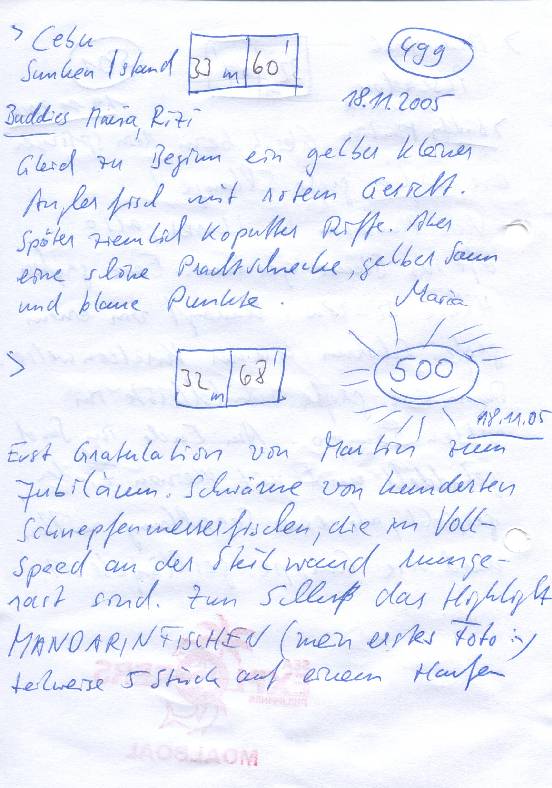 > Cebu
Sunken Island 33 m 60' 499
18.11.2005
Buddies Maria, Rizi
Gleich zu Beginn ein gelber kleiner
Anglerfisch mit rotem Gesicht.
Später ziemlich kaputter Riffe. Aber
eine schöne Prachtschnecke, gelber Saum
und blaue Punkte. Maria
> 32 m 68' 500
18.11.05
Erst Gratulation von Martin zum
Jubiläum. Schwärme von hunderten
Schnepfenmesserfischen, die in Voll-
Speed an der Steilwand
rast sind. Zum Schluß das Highlight
MANDARINFISCHEN (mein erstes Foto :-)
teilweise 5 Stück auf einem Haufen
MOALBOAL